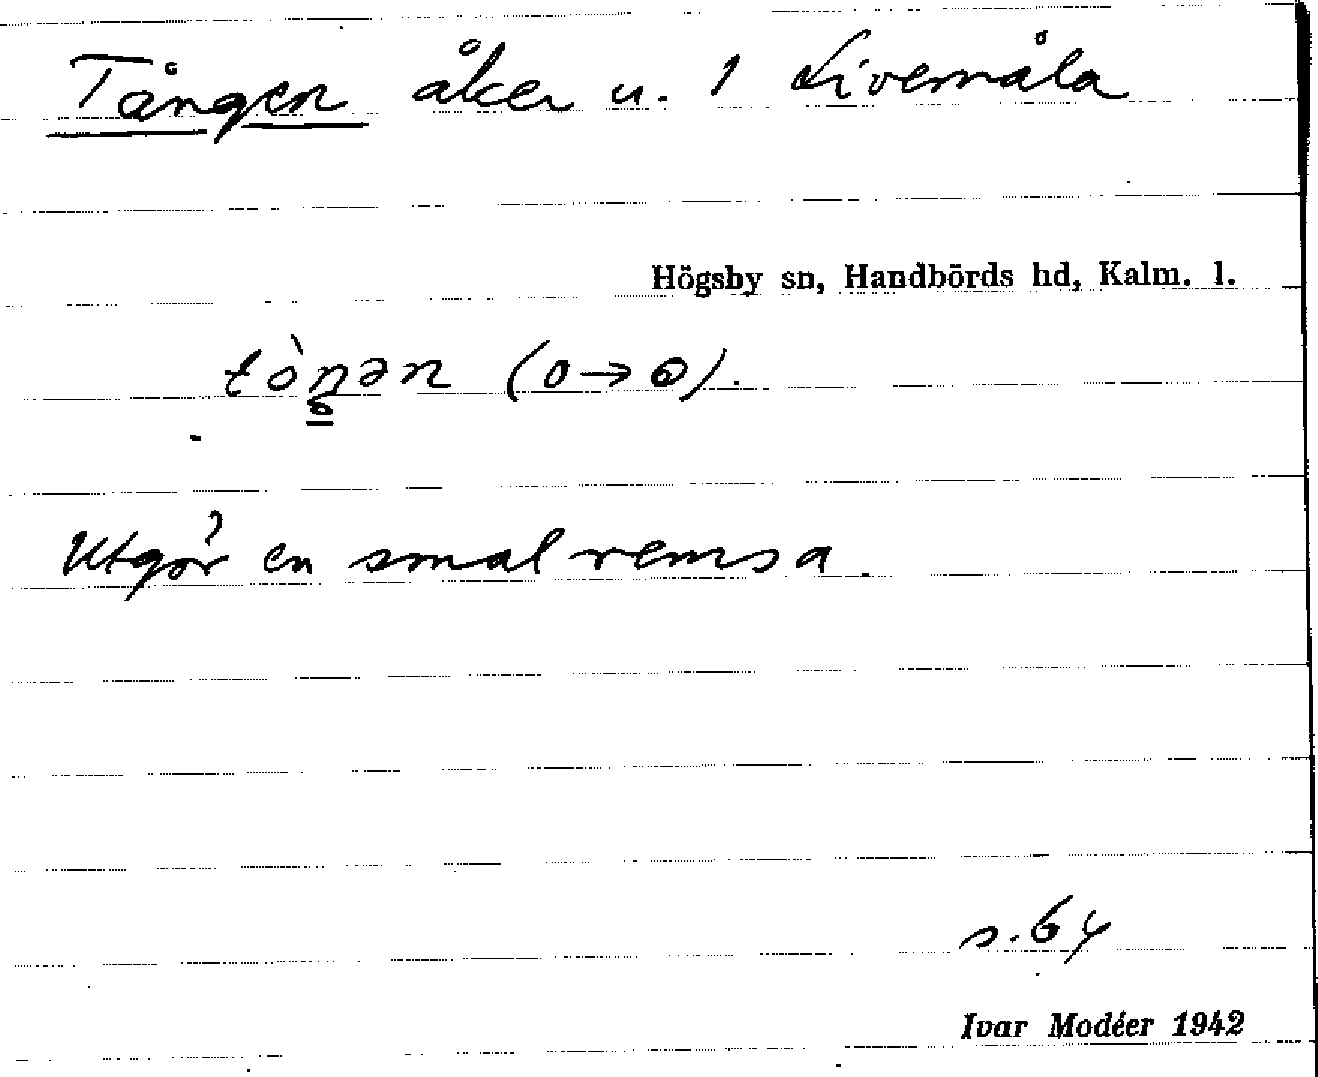 Tången åker u. 1 Livemåla
Högsby sn, Handbörds hd, Kalm. l.
(o→
Utgör en smal remsa.
s. 64
Ivar Modéer 1942